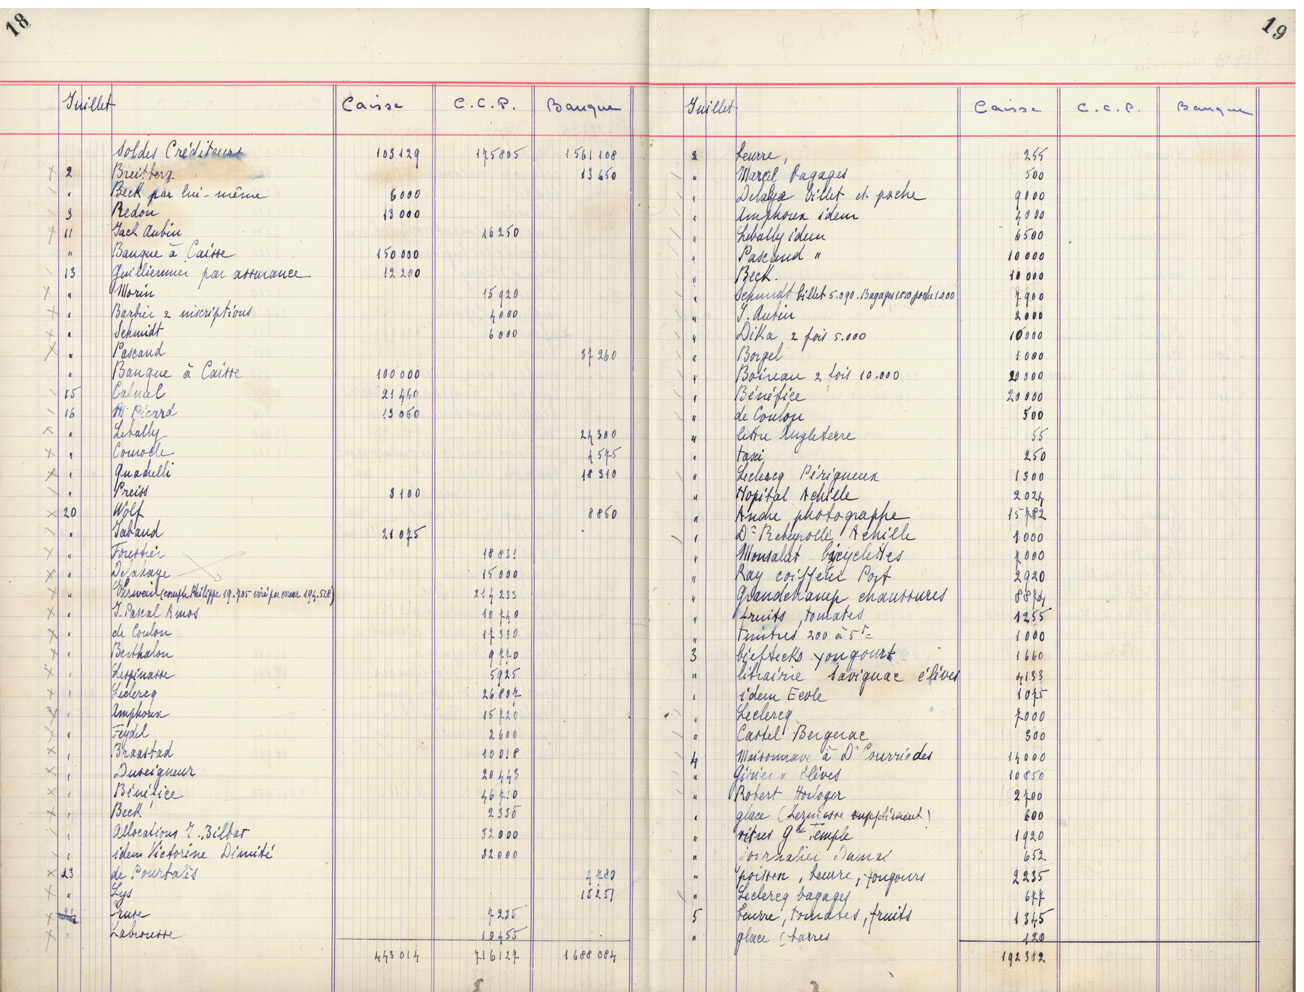 18
Juillet Caisse C.C.P. Banque
Soldes Créditeurs 103129 175805 1561108
2 Breitberg 13650
" Beck par lui-même 6000
3 Redon 13000
11 Jack Aubin 16250
" Banque à Caisse 150000
13 Guilliermin par assurance 12200
" Morin 15920
" Barbier 2 inscriptions 4000
" Schmidt 6000
" Pascaud 37260
" Banque à Caisse 100000
15 Calnal 21460
16 Picard 13050
" Lebally 24300
" 4575
" Guadelli 18310
" Preiss 3100
20 Wolf 8850
" 21075
" Forestier 18831
" Delahaye 15000
" (compte Philippe 19.705 viré par erreur 194.528) 214233
" J. Pascal Amos 10740
" de Coulon 17330
" Berthalon 9770
" Lespinasse 5925
" Leclercq 26897
" Amphoux 15720
" Feydel 2600
" Braastad 10018
" Duseigneur 20443
" Bénéfice 46710
" Beck 2335
" Allocations 32000
" idem Victorine Dimité 32000
23 de Pourtalès 4789
" Lys 15257
" 7235
" Labrousse 10455
443014 716127 1688084
19
Juillet Caisse C.C.P. Banque
2 beurre, 255
" Marcel bagages 500
" Delage billet et poche 9000
" Amphoux idem 4000
" Lebally idem 6500
" Pascaud " 10000
" Beck. 10000
" Schmidt billet 5.090. Bagages 1010 poche 1200 7900
" J. Aubin 2000
" Dika 2 fois 5.000 10000
" Borgel 1000
" Boireau 2 fois 10.000 20000
" Bénéfice 20000
" de Coulon 500
" lettre Angleterre 55
" taxi 250
" Leclercq Périgueux 1300
" Hopital Achille 2024
" André photographe 15782
" Dr Rebeyrolle Achille 1000
" Monsalat bicyclettes 7000
" Ray coiffeur Port 2920
" Grandchamp chaussures 8874
" fruits, tomates 1255
" timbres 200 à 5f 1000
3 biefsteks yougourt 1660
" librairie Lavignac élèves 4133
" idem Ecole 1075
" Leclercq 7000
" Castel Bergerac 300
4 Maisonnave à Dr Courriedes 14000
" élèves 10850
" Robert Horloger 2700
" glace (supplément) 600
" vitres gd Temple 1920
" journalier Dumas 652
" poisson, beurre, yougours 2235
" Leclercq bagages 677
5 beurre, tomates, fruits 1345
" glace 5 barres 120
192302